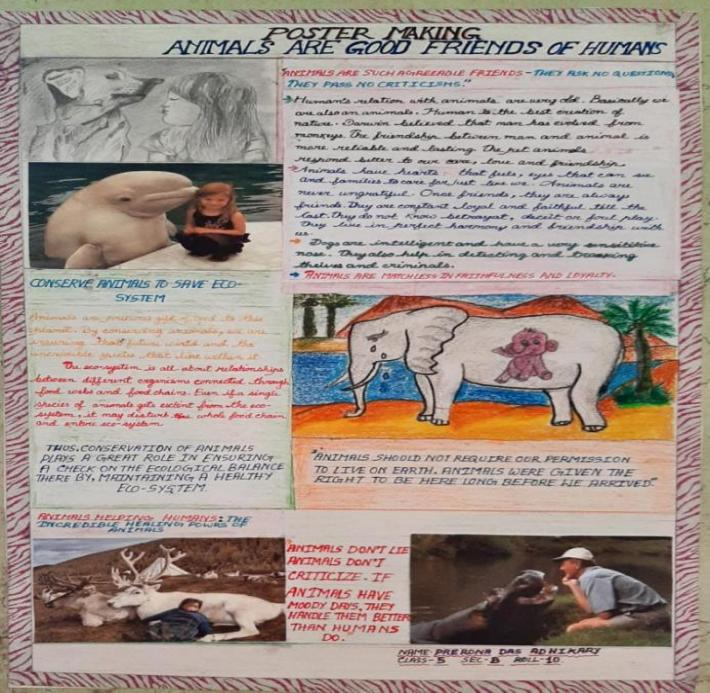 POSTER MAKING
ANIMALS ARE GOOD FRIENDS OF HUMANS
"ANIMALS ARE SUCH AGREEABLE FRIENDS - THEY ASK NO QUESTIONS,
THEY PASS NO CRITICISMS."
Human's relation with animals are very old. Basically we
are also an animals. Human is the best creation of
nature. Darwin believed that man has evolved from
monkeys. The friendship between man and animal is
more reliable and lasting. The pet animals
respond better to our care, love and friendship.
Animals have hearts that feels, eyes that can see
and families to care for just like we. Animals are
never ungrateful. Once friends, they are always
friends. They are constant loyal and faithful till the
last. They do not know betrayal, deceit or foul play.
They live in perfect harmony and friendship with
us.
Dogs are intelligent and have a very sensitive
nose. They also help in detecting and
theives and criminals.
ANIMALS ARE MATCHLESS IN FAITHFULNESS AND LOYALTY.
CONSERVE ANIMALS TO SAVE ECO-
SYSTEM
Animals an precious gift of god to this
planet. By conserving animals, we are
ensuring that future world and the
species that live within it.
The ecosystem is all about relationships
between different organisms connected through
food webs and food chains. Even if a single
species of animals gets extent from the eco-
system, it may disturb the whole food chain
and entire eco-system
THUS, CONSERVATION OF ANIMALS
PLAYS A GREAT ROLE IN ENSURING
A CHECK ON THE ECOLOGICAL BALANCE
THERE BY, MAINTAINING A HEALTHY
ECO-SYSTEM.
"ANIMALS SHOULD NOT REQUIRE OUR PERMISSION
TO LIVE ON EARTH. ANIMALS WERE GIVEN THE
RIGHT TO BE HERE LONG BEFORE WE ARRIVED."
ANIMALS HELPING HUMANS: THE
INCREDIBLE HEALING POWRS OF
ANIMALS
ANIMALS DON'T LIE
ANIMALS DON'T
CRITICIZE. IF
ANIMALS HAVE
MOODY DAYS, THEY
HANDLE THEM BETTER
THAN HUMANS
DO."
NAME- PRERONA DAS ADHIKARY
CLASS-5 SEC-B ROLL-10